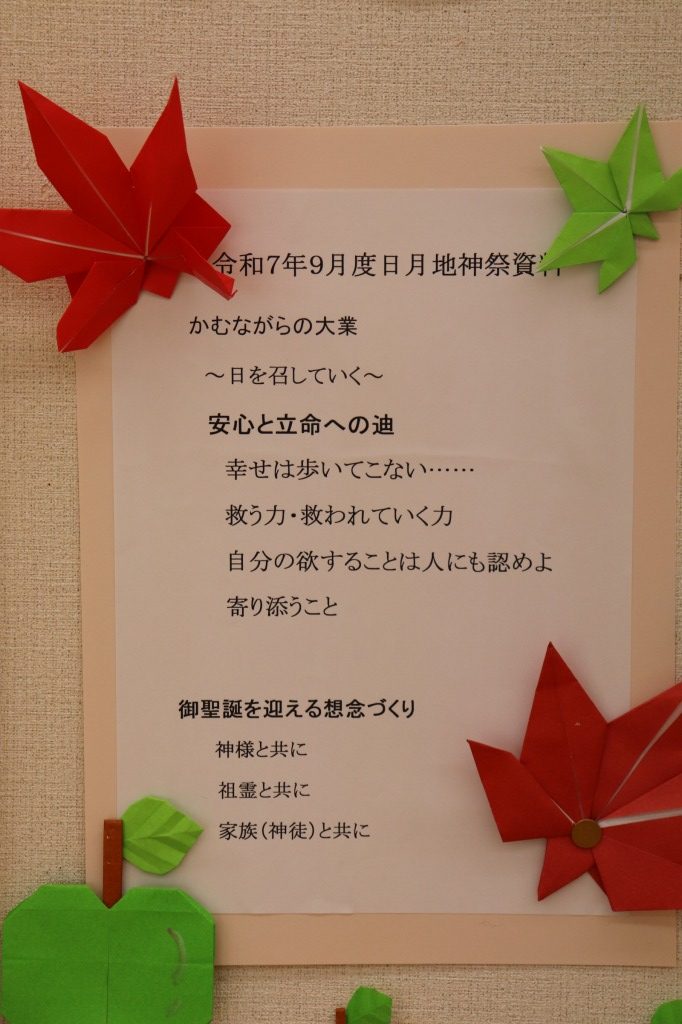 令和7年9月度日月地神祭資料
かむながらの大業
～日を召していく～
安心と立命への迪
幸せは歩いてこない……
救う力・救われていく力
自分の欲することは人にも認めよ
寄り添うこと
御聖誕を迎える想念づくり
神様と共に
祖霊と共に
家族（神徒）と共に